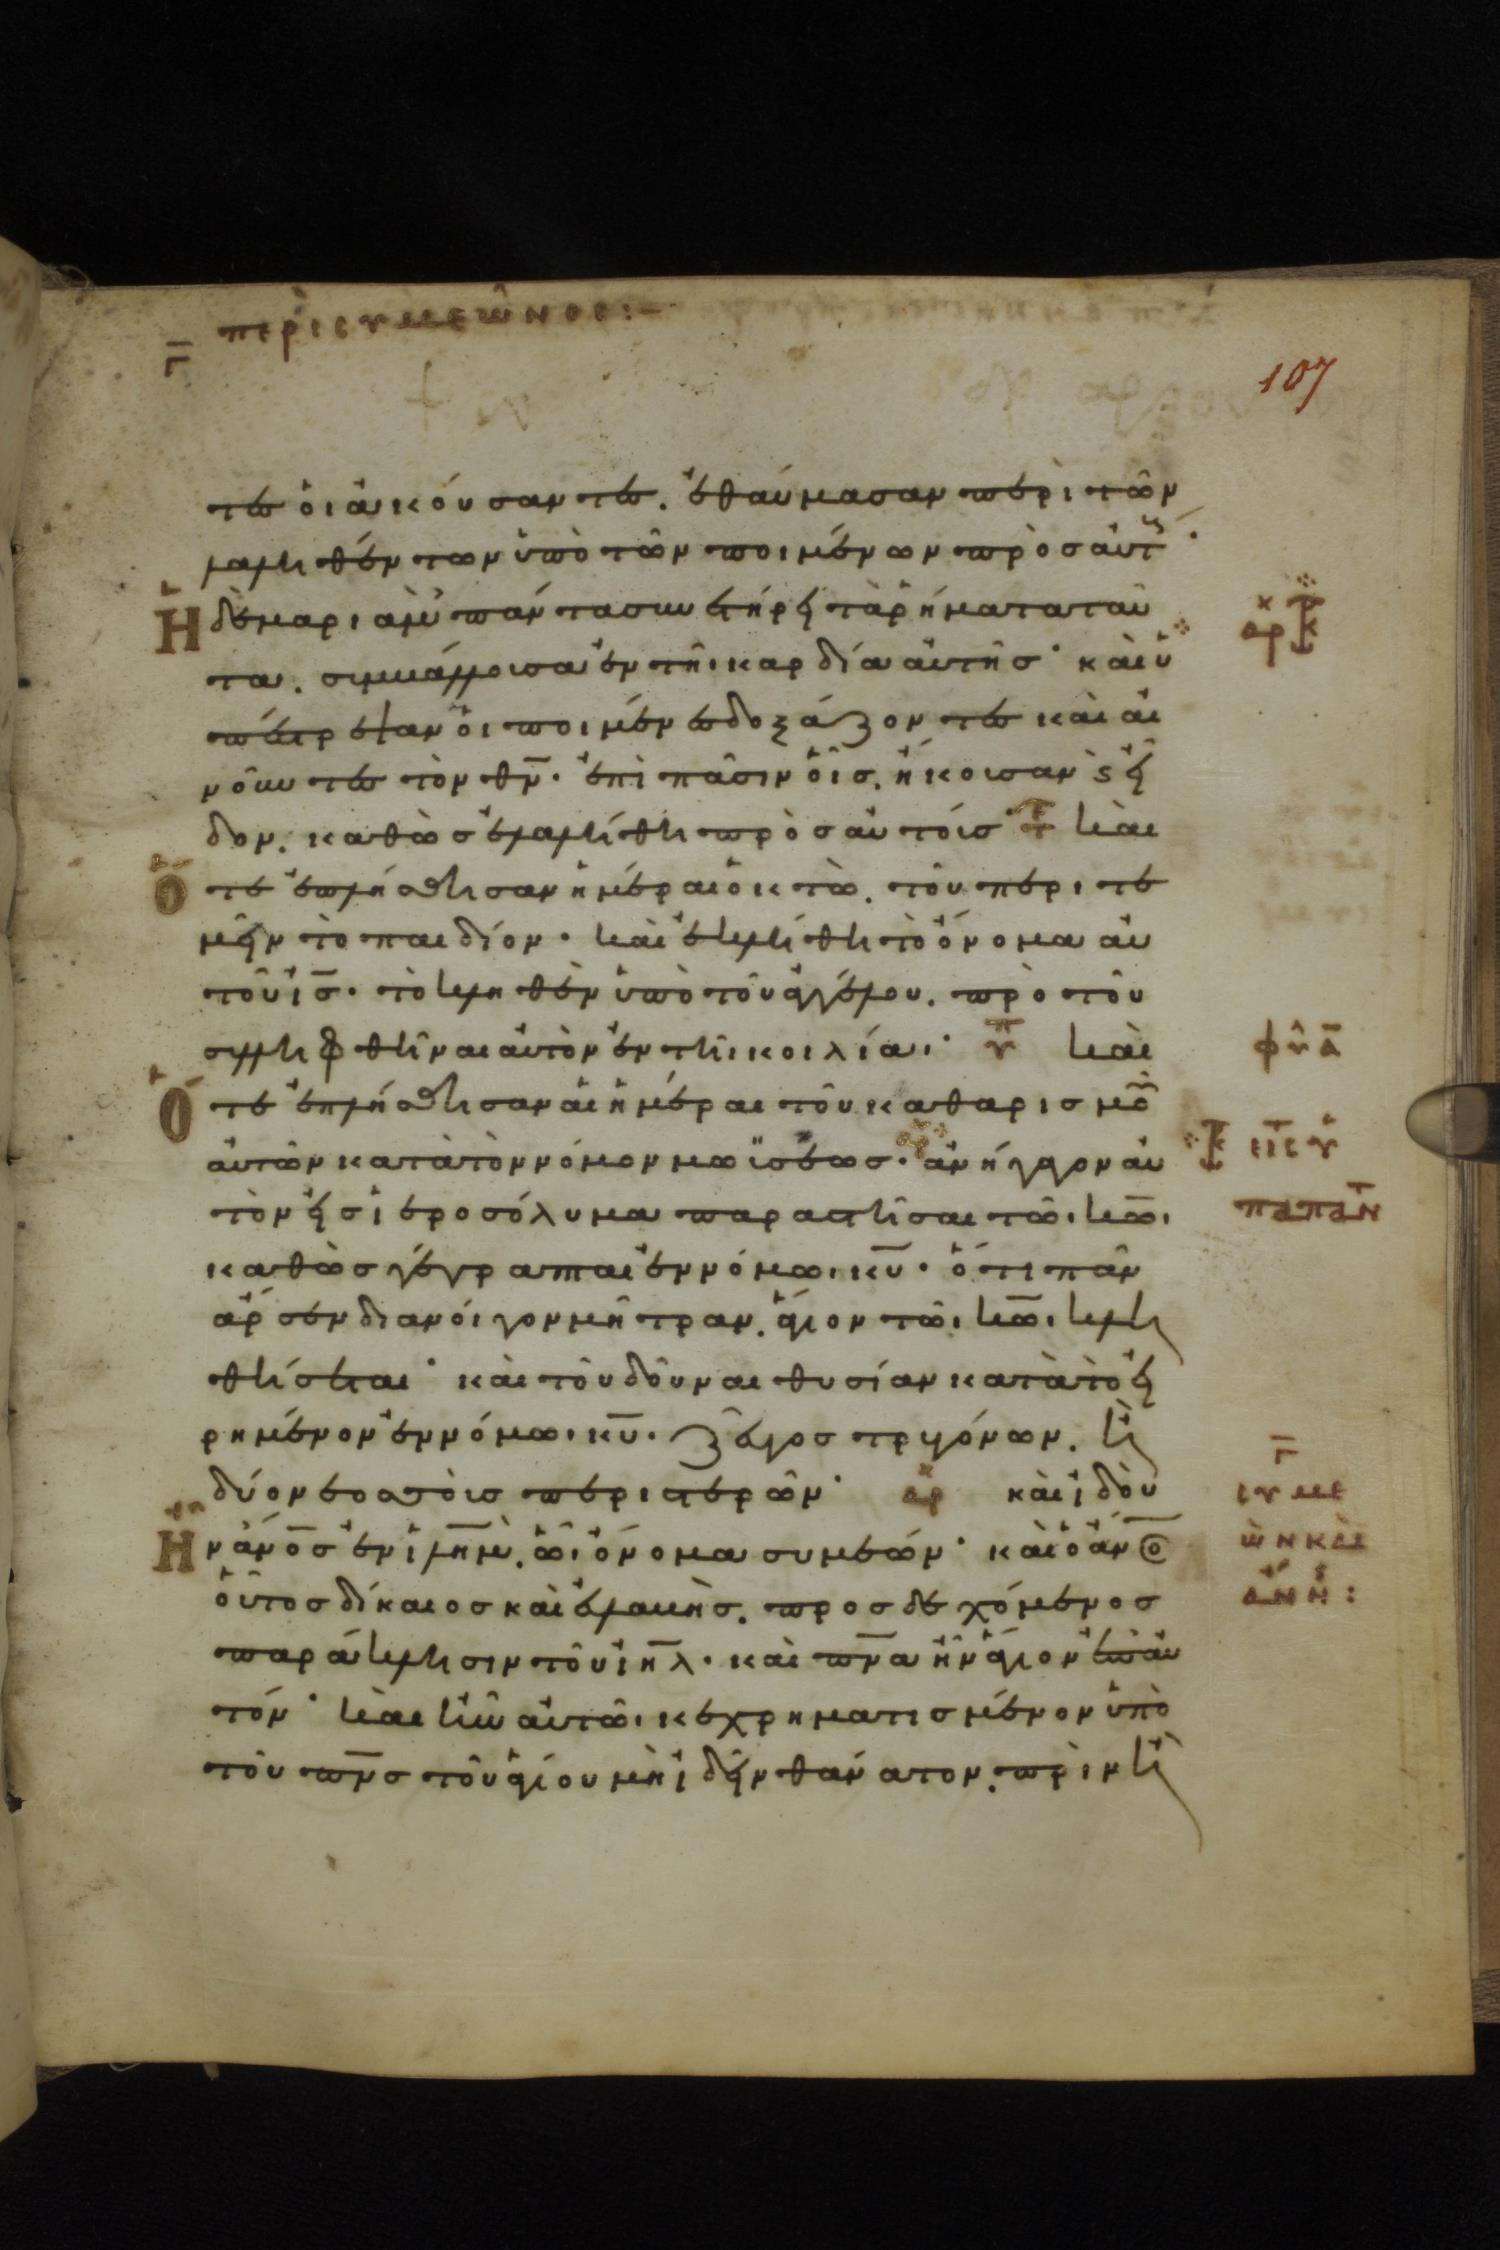 γ̅ περὶ συμεῶνος:–
107
τες ὁι ἀκούσαντες. ἐθαύμασαν περὶ τῶν
λαληθέντων ὑπὸ τῶν ποιμένων πρὸς αὐτούς·
Ἡ δὲ μαριὰμ πάντα συνετήρει τὰ ῥήματα ταῦ
τα. συμβάλλουσα ἐν τῆι καρδία αὐτῆς· καὶ ὑ
πέστρεψαν ὁι ποιμένες δοξάζοντες καὶ αἰ
νοῦντες τὸν θ̅ν̅. ἐπὶ πᾶσιν οἷς. ἤκουσαν ϗ εἶ
δον. καθὼς ἐλαλήθη πρὸς αὐτούς· τε καὶ
Ὅτε ἐπλήσθησαν ἡμέραι ὀκτὼ. τοῦ περιτε
μεῖν τὸ παιδίον. καὶ ἐκλήθη τὸ ὄνομα αὐ
τοῦ ι̅ς̅. τὸ κληθὲν ὑπὸ τοῦ ἀγγέλου. πρὸ τοῦ
συλληφθῆναι αὐτὸν ἐν τῆι κοιλίαι· υπ καὶ
φυλα
Ὅτε ἐπλήσθησαν αἱ ἡμέραι τοῦ καθαρισμοῦ
αὐτῶν κατὰ τὸν νόμον μωϋσέως. ἀνήγαγον αὐ
εἰς τ υπαπαν
τὸν εἰς ἱεροσόλυμα παραστῆσαι τῶι κ̅ω̅ι
καθὼς γέγραπται ἐν νόμωι κ̅υ̅. ὅτι πᾶν
ἄρσεν διανοίγον μήτραν. ἅγιον τῶι κ̅ω̅ι κλη
θήσεται· καὶ τοῦ δοῦναι θυσίαν κατὰ τὸ εἰ
ρημένον ἐν νόμωι κ̅υ̅. ζεῦγος τρυγόνων. ἢ
δύο νεοσσοὺς περιστερῶν· αρχ καὶ ἰδοὺ
γ̅ συμε
Ἦν ἄν̅ο̅ς̅ ἐν ἰλ̅η̅μ̅. ὧι ὄνομα συμεών· καὶ ὁ ἄν̅ο̅ς̅
ὼν καὶ
ἄνν:
οὗτος δίκαιος καὶ εὐλαβὴς. προσδεχόμενος
παράκλησιν τοῦ ἰη̅λ̅. καὶ π̅ν̅α̅ ἦν ἅγιον ἐπ᾽ αὐ
τόν· καὶ ἦν αὐτῶι κεχρηματισμένον ὑπὸ
τοῦ π̅ν̅ς̅ τοῦ ἁγίου μὴ ἰδεῖν θάνατον. πρὶν ἢ